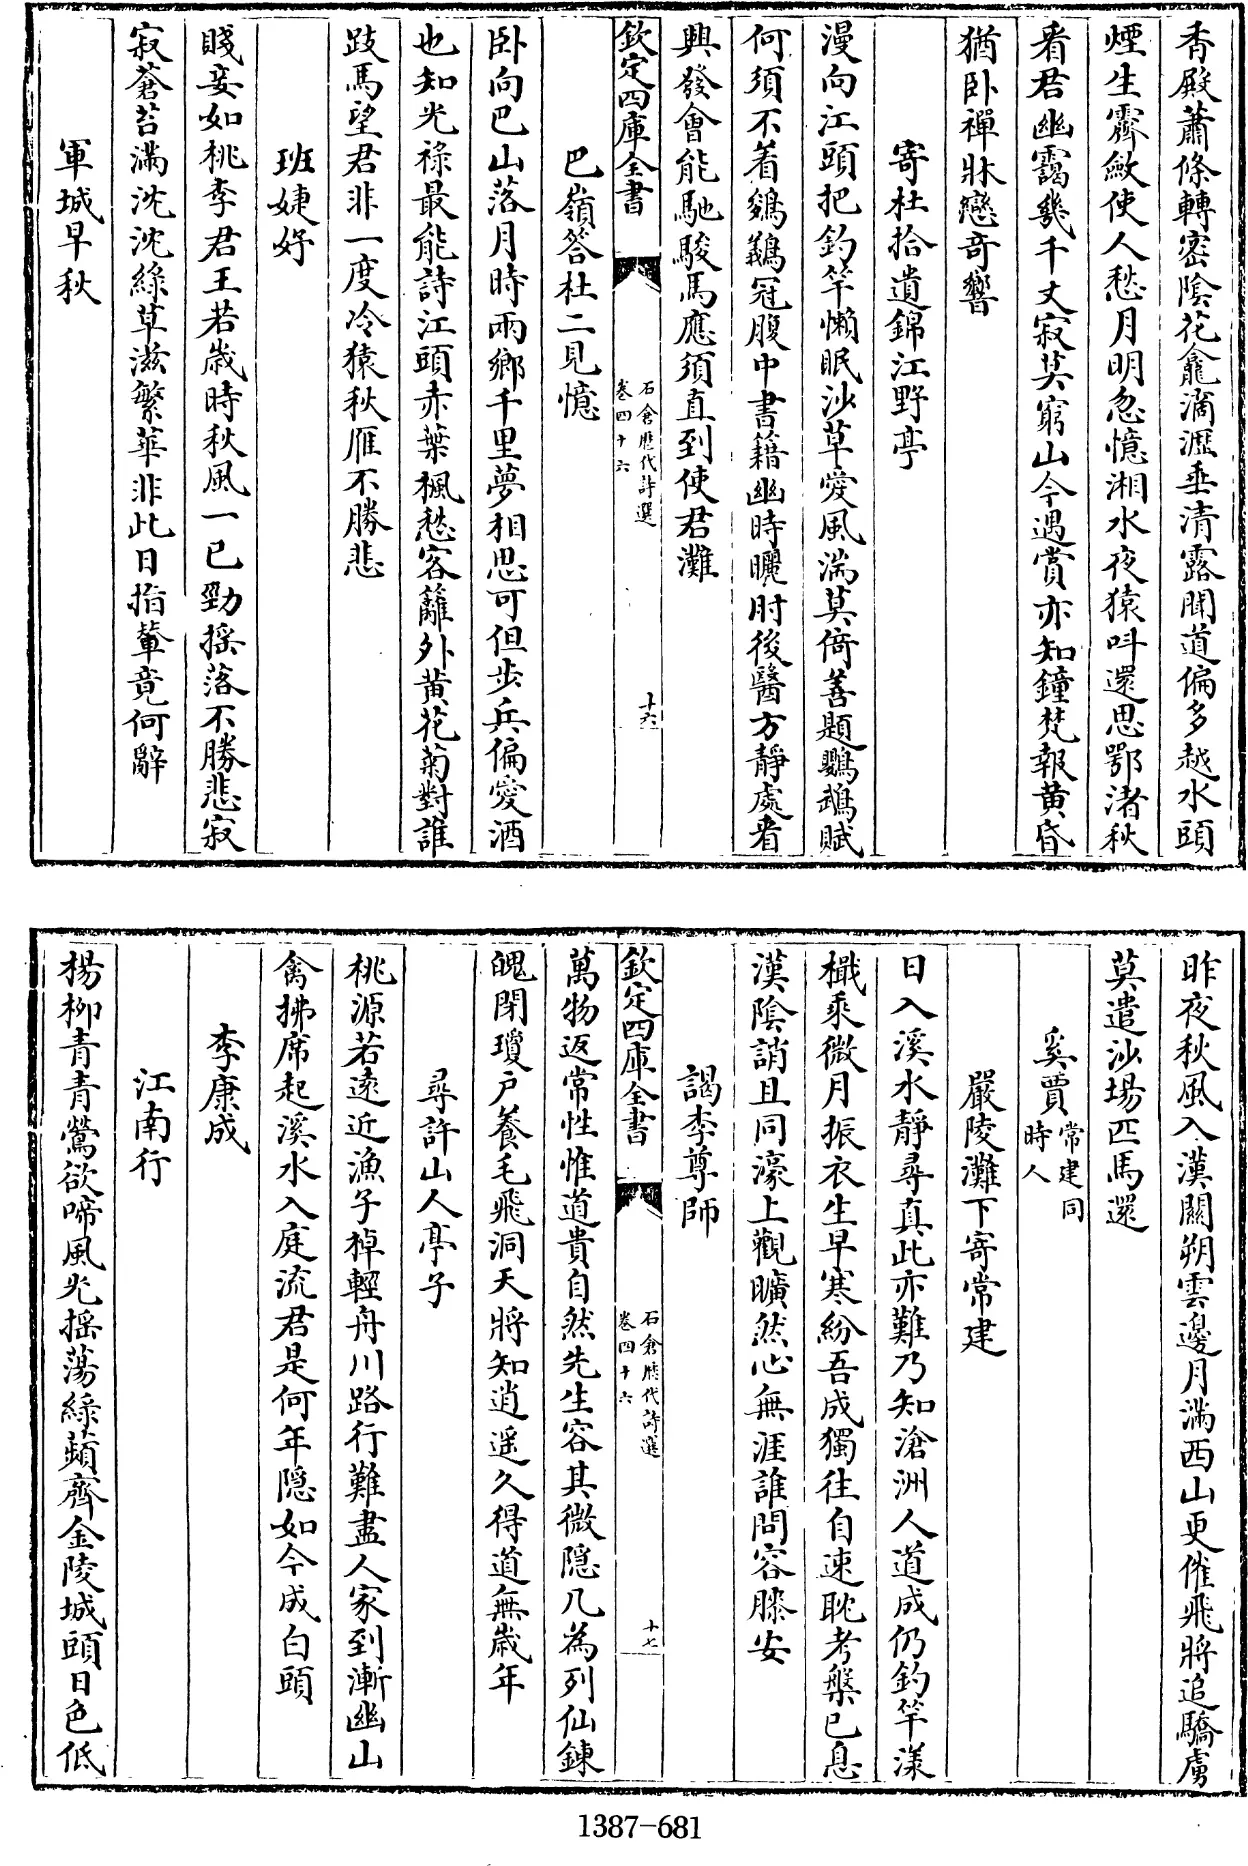 香殿蕭條轉密陰花龕滴瀝垂清露聞道偏多越水頭
煙生霽斂使人愁月明忽憶湘水夜猿叫還思鄂渚秋
看君幽靄幾千丈寂莫窮山今遇賞亦知鐘梵報黄昏
猶卧禪牀戀奇響
寄杜拾遺錦江野亭
漫向江頭把釣竿懶眠沙草愛風湍莫倚善題鸚鵡賦
何須不着鵔鸃冠腹中書籍幽時曬肘後醫方靜處看
興發會能馳駿馬應須直到使君灘
欽定四庫全書
石倉歴代詩選
卷四十六
十六
巴嶺答杜二見憶
卧向巴山落月時兩鄉千里夢相思可但步兵偏愛酒
也知光祿最能詩江頭赤葉楓愁客籬外黄花菊對誰
跂馬望君非一度冷猿秋雁不勝悲
班婕妤
賤妾如桃李君王若歲時秋風一已勁揺落不勝悲寂
寂蒼苔滿沈沈綠草滋繁華非此日指輦竟何辭
軍城早秋
昨夜秋風入漢關朔雲邊月滿西山更催飛將追驕虜
莫遣沙場匹馬還
奚賈常建同時人
嚴陵灘下寄常建
日入溪水靜尋真此亦難乃知滄洲人道成仍釣竿漾
檝乘微月振衣生早寒紛吾成獨往自速耽考槃已息
漢陰誚且同濠上觀曠然心無涯誰問容膝安
謁李尊師
欽定四庫全書
石倉歴代詩選
卷四十六
十七
萬物返常性惟道貴自然先生容其微隠几為列仙鍊
魄閉瓊户養毛飛洞天將知逍遥久得道無歲年
尋許山人亭子
桃源若遠近漁子棹輕舟川路行難盡人家到漸幽山
禽拂席起溪水入庭流君是何年隠如今成白頭
李康成
江南行
楊柳青青鶯欲啼風光揺蕩綠蘋齊金陵城頭日色低
1387-681